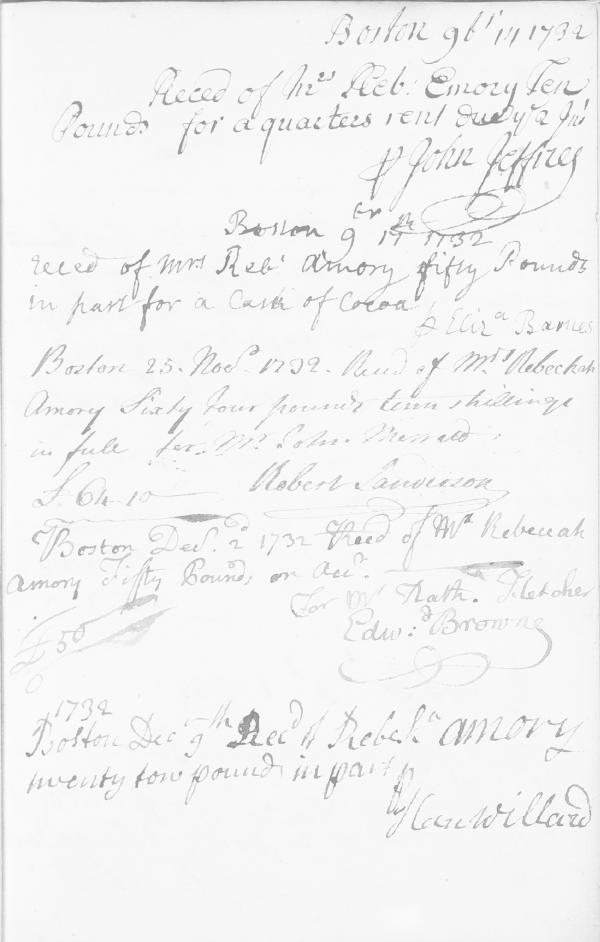 Boston 9br 14 1732
Reced of Mrs Reb: Emory Ten
Pounds for a quarters rent due
⅌ John Jeffres
Boston 9br 17th 1732
reced of Mrs Reba Amory fifty Pounds
in part for a Cask of Cocoa
⅌ Eliza Barnes
Boston 25. Novr. 1732. Recd of Mrs Rebeckah
Amory Sixty four pounds tenn shillings
in full for Mr John
£ 64.10 Robert Sanderson
Boston Decr. 2d 1732 Recd of Mrs Rebeccah
Amory Fifty Pounds on Acct.
For Mr Nath. Fletcher
£50 Edwd: Browne
1732
Boston Dec 9th Recd of Rebeka amory
twenty tow pounds in part
⅌ Willard